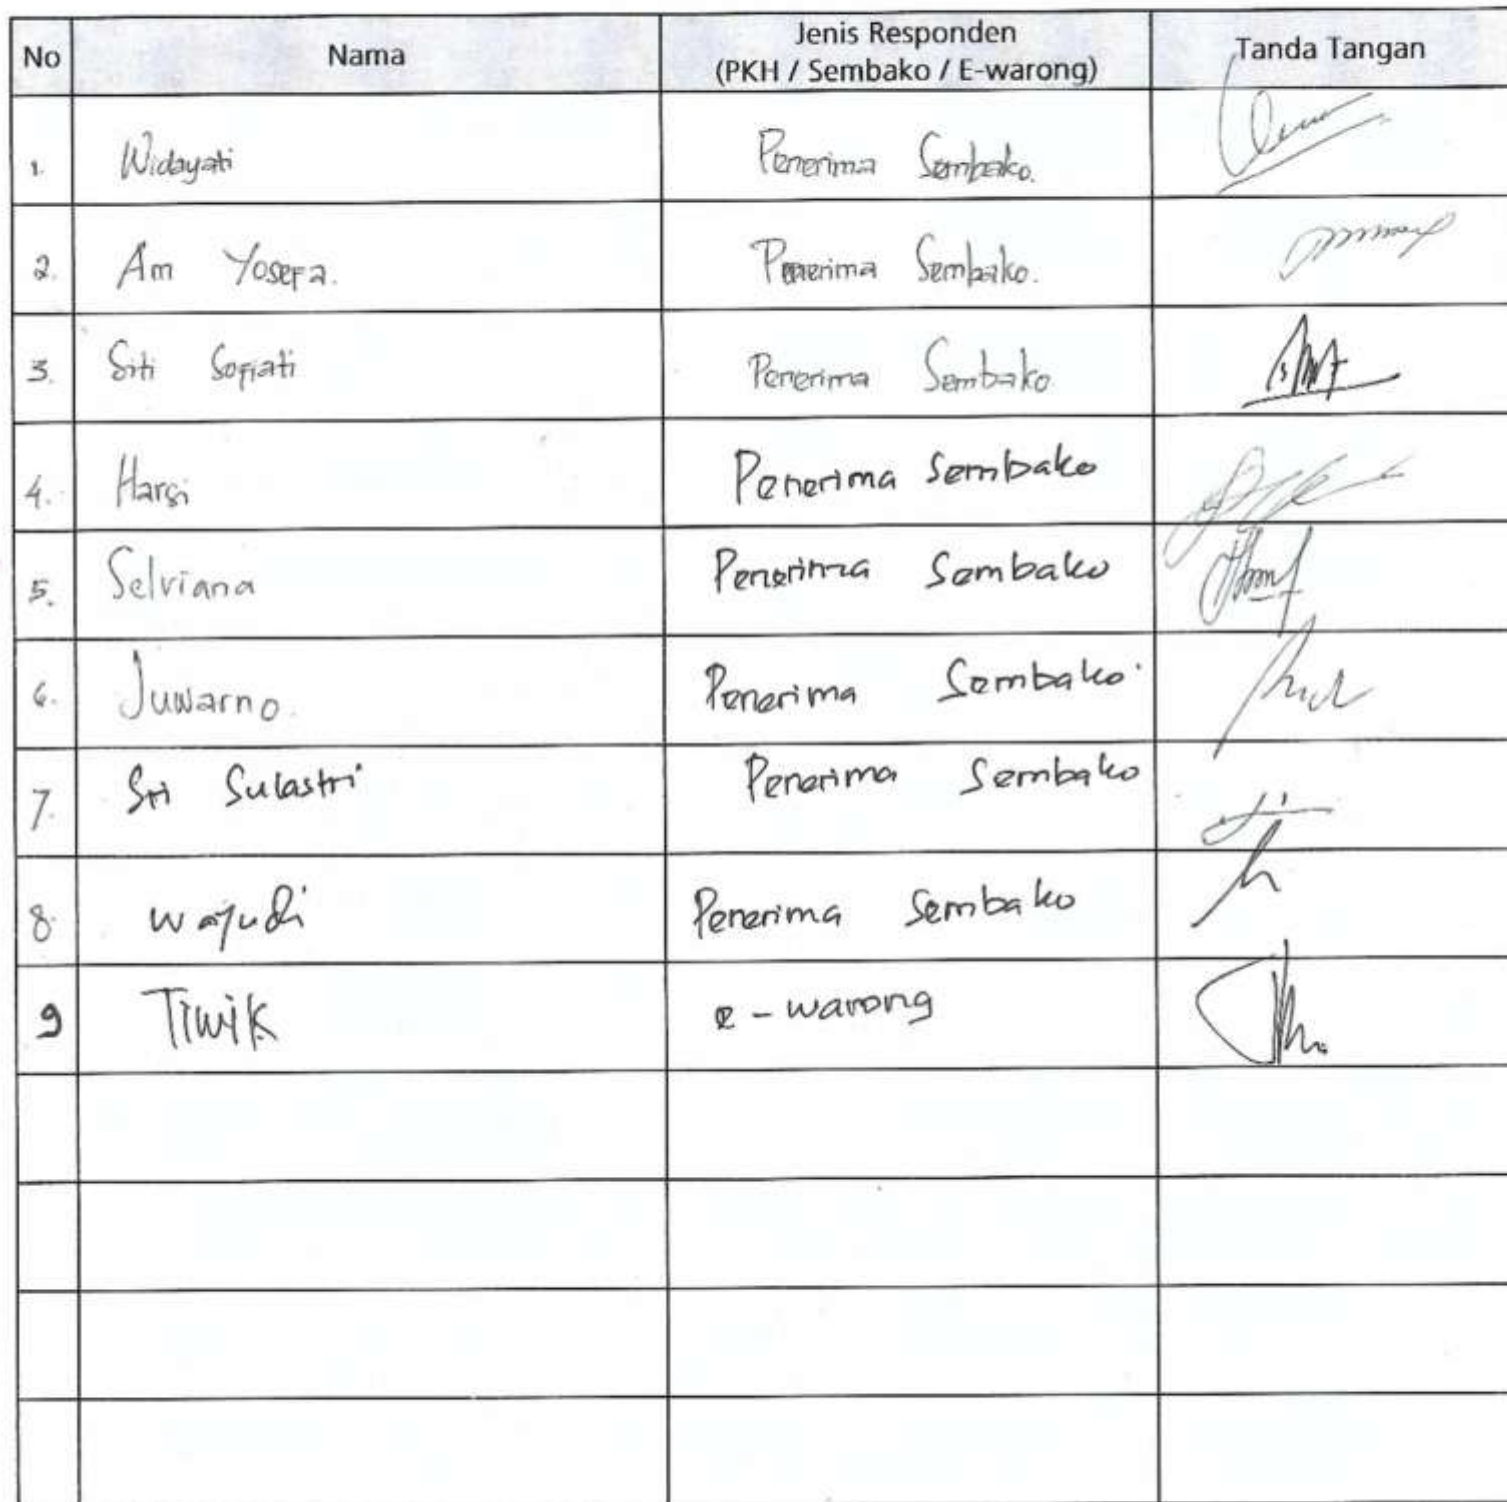 No Nama Jenis Responden Tanda Tangan
(PKH / Sembako / E-warong)
1. Widayati Penerima Sembako.
2. Am Yosefa. Penerima Sembako.
3. Siti Sofiati Penerima Sembako
4. Harsi Penerima Sembako
5. Selviana Penerima Sembako
6. Juwarno. Penerima Sembako
7. Sri Sulastri Penerima Sembako
8. Wayudi Penerima Sembako
9 Tiwik e-warong